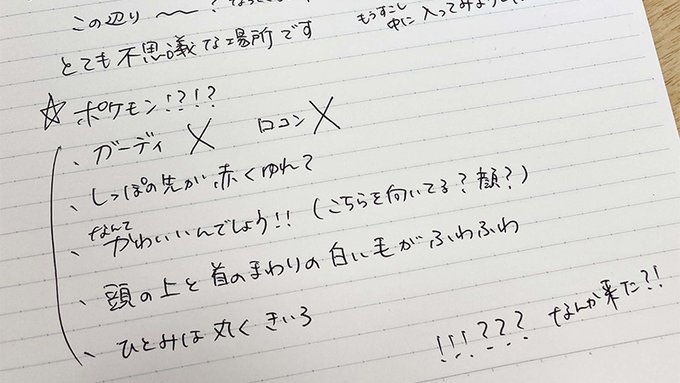 この辺り 〜 ?
もうすこし
中に入ってみよう
とても不思議な場所です
☆ポケモン!?!?
、ガーディ × ロコン ×
、しっぽの先が赤くゆれて
、なんてかわいいんでしょう!!(こちらを向いてる?顔?)
、頭の上と首のまわりの白い毛がふわふわ
、ひとみは丸くきいろ
!!!??? なんか来た?!